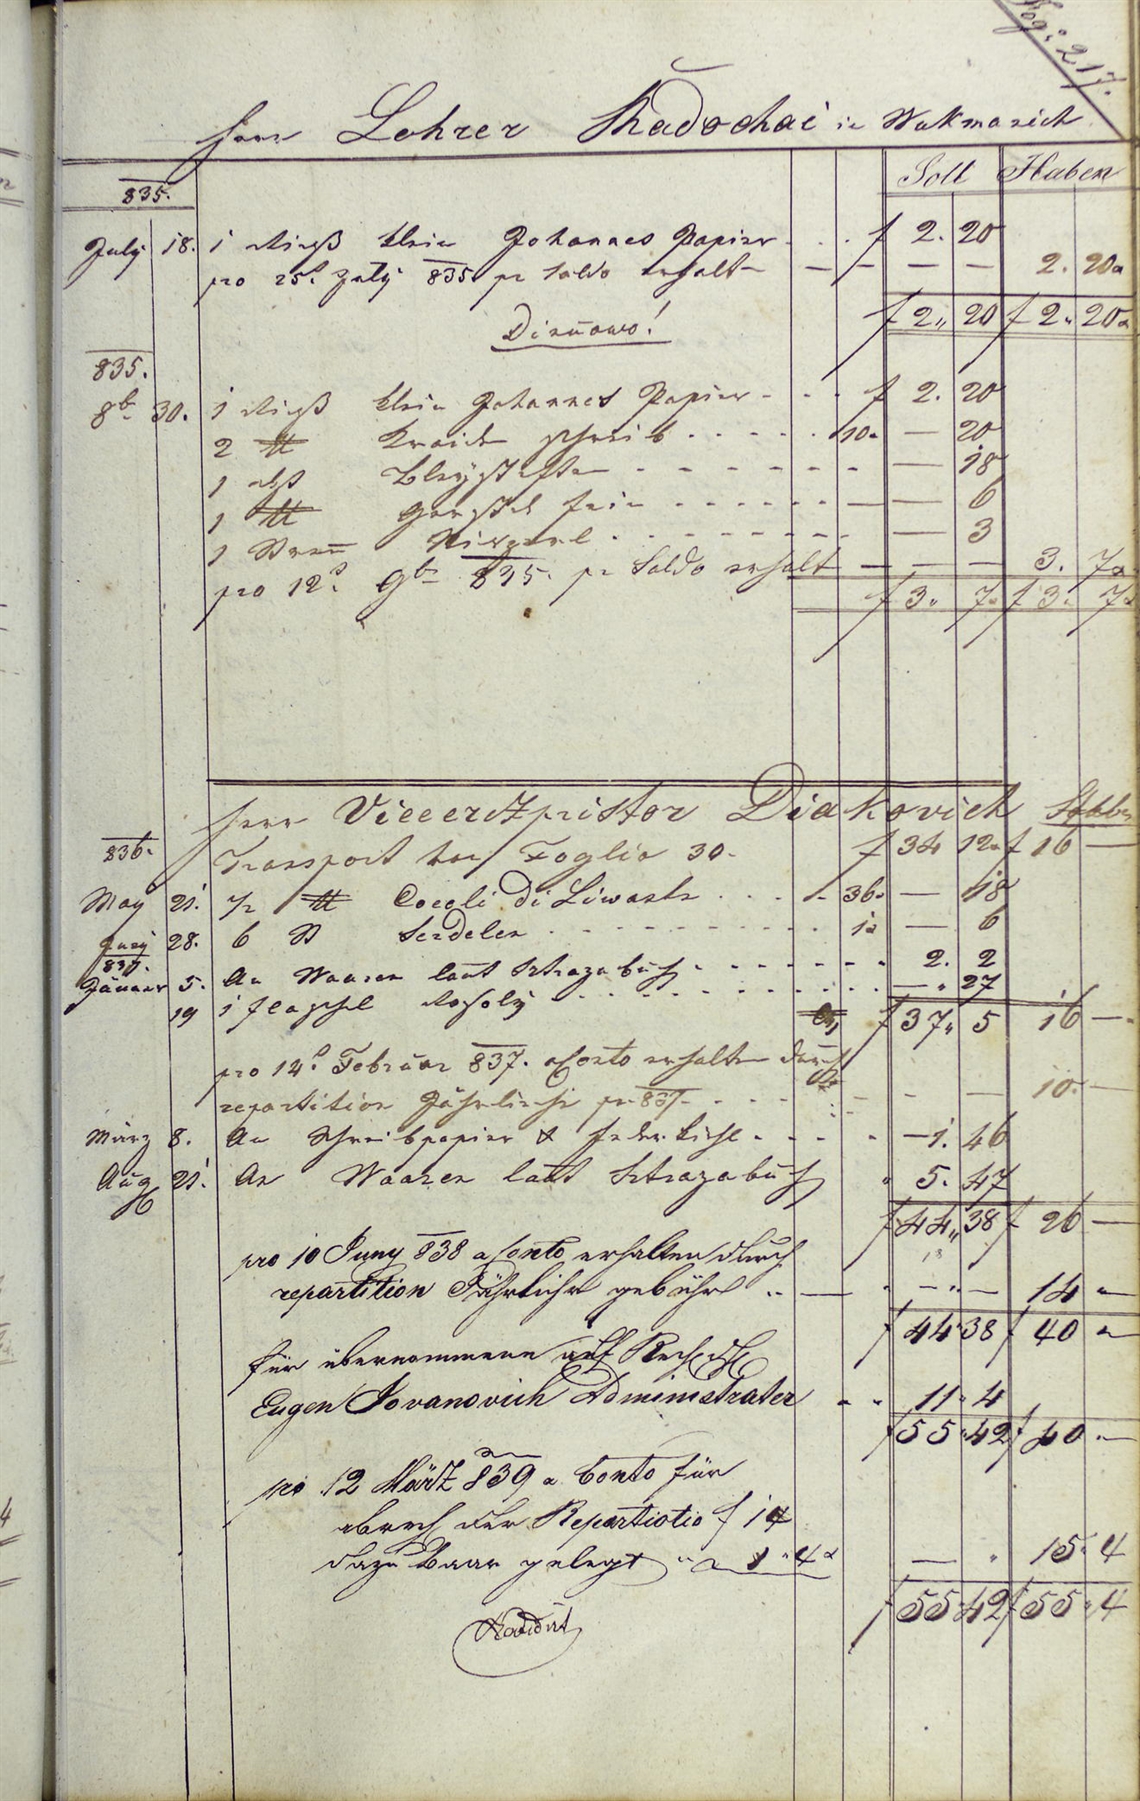 Fog: 217.
Herr Lehrer Radochai in Wukmanich
Soll Haben
835.
July 18. 1 Rieß klein Johannes Papier . . . f 2. 20
pro 25t July 835 pr Saldo erhalten — — — — 2. 20
f 2 20 f 2 20
835.
8b 30. 1 Rieß klein Johannes Papier - - - f 2. 20
2 ℔ Kreide 10 — 20
1 — 18
1 ℔ fein — — 6
1 — 3
pro 12t 9b 835. pr Saldo erhalt — — — 3. 7
f 3 7 f 3 7
Herr Vicecerzpristor Diakovich Haben
836. Transport von Foglio 30. f 34 12 f 16 —
May 21. 1/2 ℔ 36 — 18
Juny 28. 6 St Serdelen 1 — 6
837.
Jänner 5. An Waaren laut Strazabuch 2. 2
19 1 Flaschl Rosoly — 27
f 37 5 16 —
pro 14t Februar 837. a Conto erhalten durch
repartition Jährliche pr 837 — — 10 —
März 8. An Schreibpapier & Federkichl — 1. 46
Aug 21. An Waaren laut Strazabuch 5. 47
f 44 38 f 26 —
pro 10 Juny 838 a Conto erhalten durch
repartition Jährliche gebühr — — — 14
f 44 38 f 40
für übernommene auf Rech
Eugen Jovanovich Administrater 11 4
f 55 42 f 40 —
pro 12 März 839 a Conto für
der Repartiotio f 14
dazu baar gelegt 1 4 — 15 4
f 55 42 f 55 4